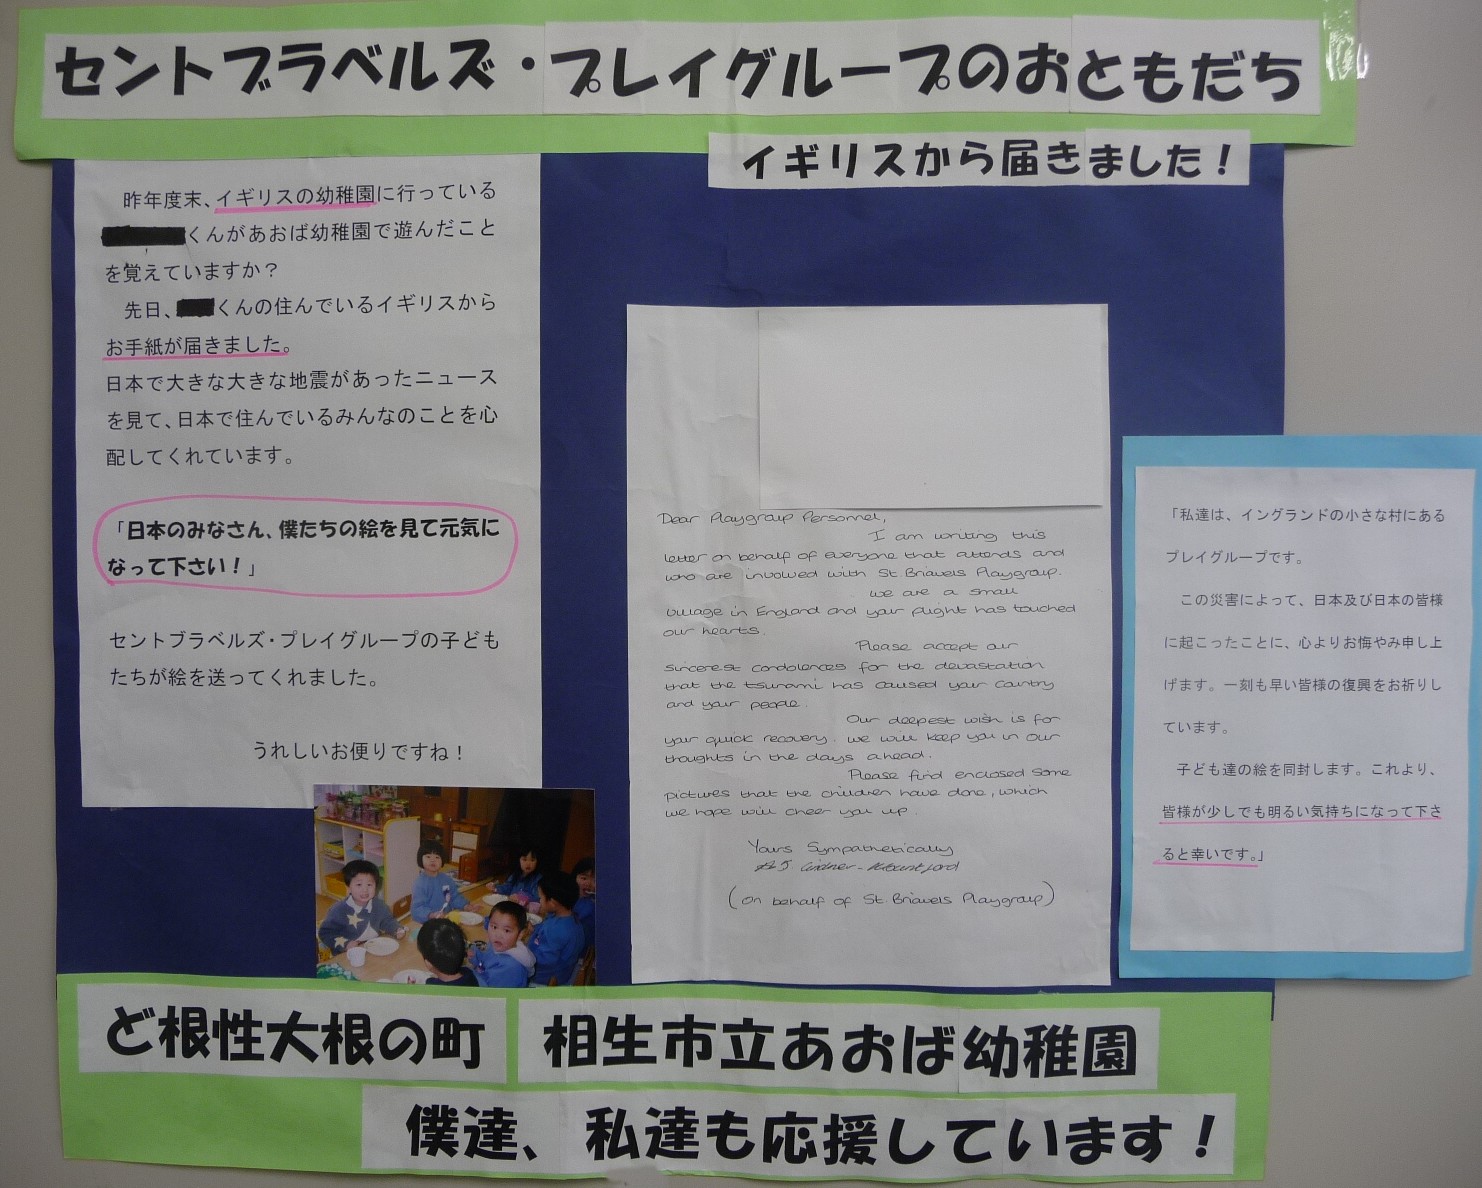 セントブラベルズ・プレイグループのおともだち
イギリスから届きました！
昨年度末、イギリスの幼稚園に行っている
くんがあおば幼稚園で遊んだこと
を覚えていますか？
先日、くんの住んでいるイギリスから
お手紙が届きました。
日本で大きな大きな地震があったニュース
を見て、日本で住んでいるみんなのことを心
配してくれています。
「日本のみなさん、僕たちの絵を見て元気に
なって下さい！」
セントブラベルズ・プレイグループの子ども
たちが絵を送ってくれました。
うれしいお便りですね！
Dear Playgroup Personnel,
I am writing this
letter on behalf of everyone that attends and
who are involved with St. Briavels Playgroup.
We are a small
village in England and your plight has touched
our hearts.
Please accept our
sincerest condolences for the devastation
that the tsunami has caused your country
and your people.
Our deepest wish is for
your quick recovery. We will keep you in our
thoughts in the days ahead.
Please find enclosed some
pictures that the children have done, which
we hope will cheer you up.
Yours Sympathetically
(on behalf of St. Briavels Playgroup)
「私達は、イングランドの小さな村にある
プレイグループです。
この災害によって、日本及び日本の皆様
に起こったことに、心よりお悔やみ申し上
げます。一刻も早い皆様の復興をお祈りし
ています。
子ども達の絵を同封します。これより、
皆様が少しでも明るい気持ちになって下さ
ると幸いです。」
ど根性大根の町 相生市立あおば幼稚園
僕達、私達も応援しています！